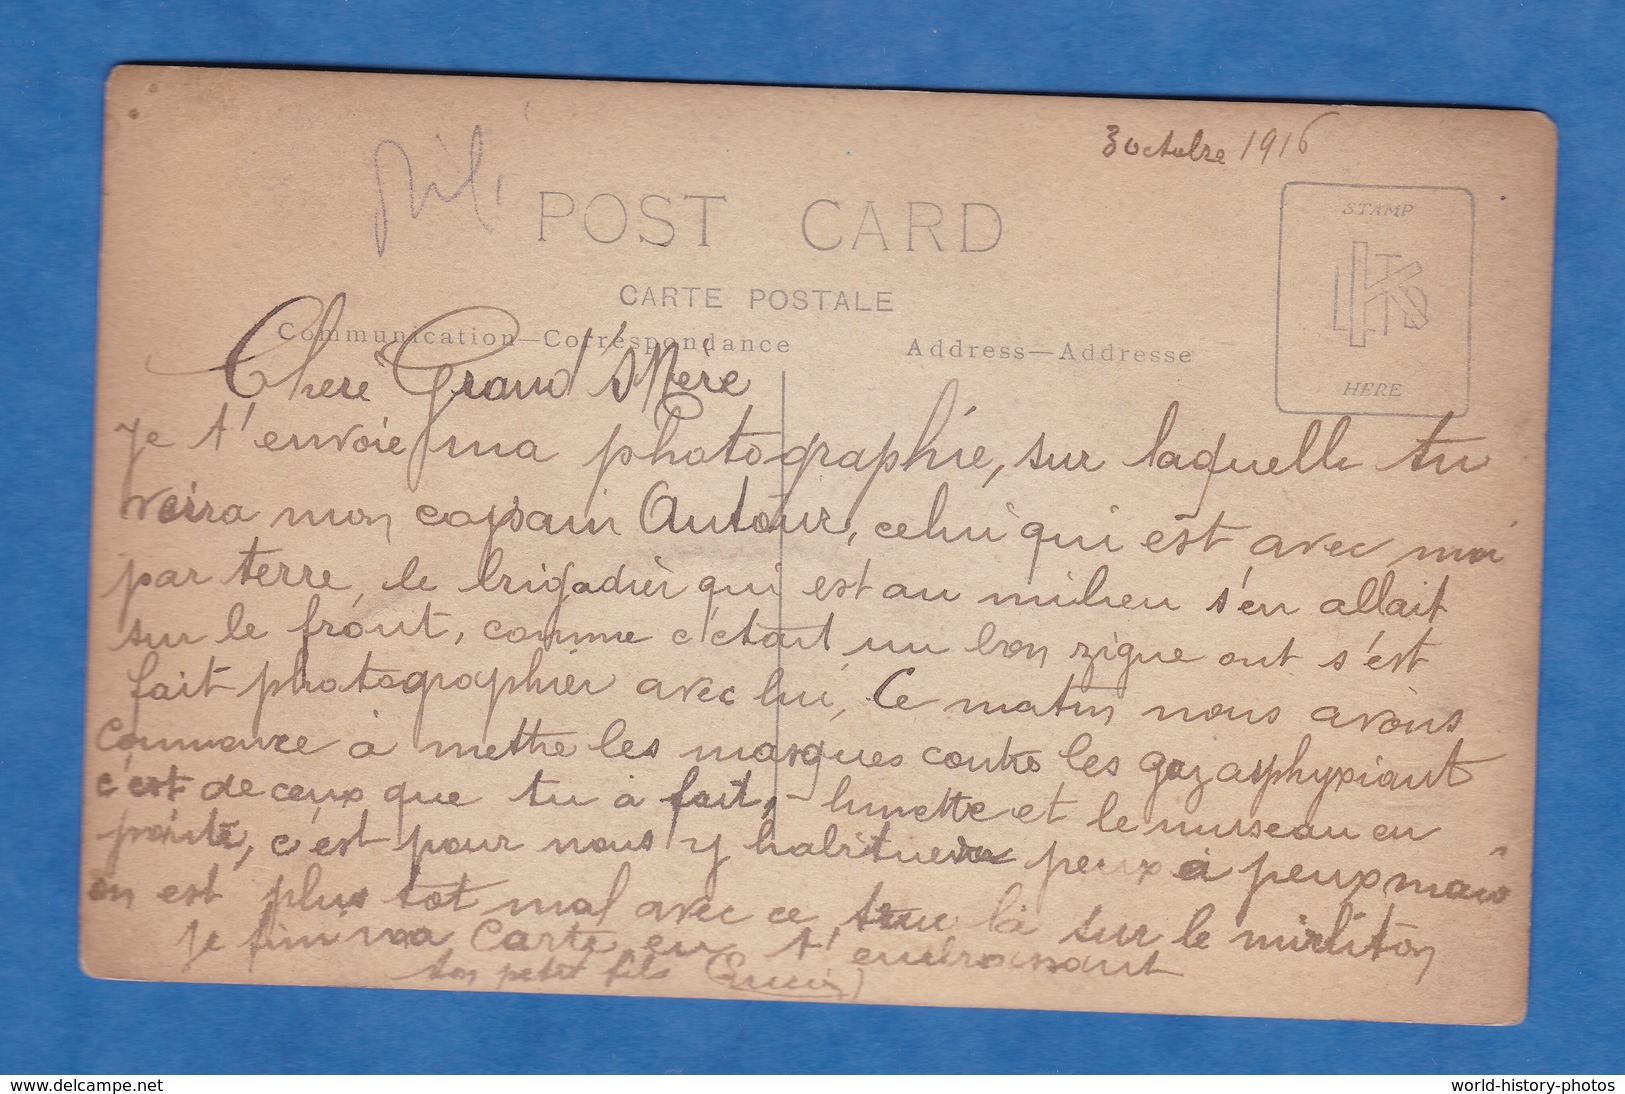 3 octobre 1916
POST CARD
CARTE POSTALE
Communication—Correspondance
Address—Addresse
STAMP
HERE
Chere Grand'Mère
Je t'envoie ma photographie, sur laquelle tu
veira mon copain Autour, celui qui est avec moi
par terre, le brigadier qui est au milieu s'en allait
sur le front, comme c'était un bon zigue ont s'est
fait photographier avec lui, Ce matin nous avons
commance à mettre les masques contre les gaz asphyxiant
c'est de ceux que tu a fait, lunette et le museau en
pointe, c'est pour nous y habituer peux à peux mais
on est plus tot mal avec ce truc là sur le mirliton
Je fini ma Carte en t'embrassant
ton petit fils
delcampe.net
world-history-photos